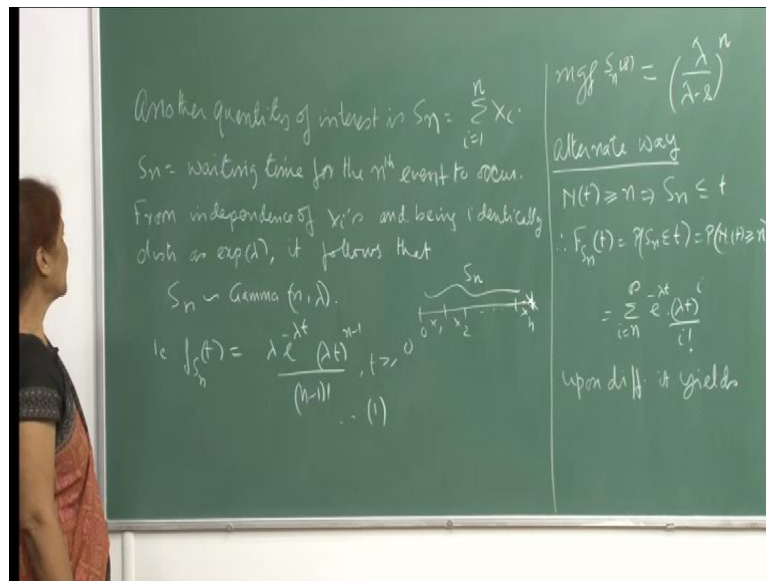 Another quantities of interest is Sn = ∑_{i=1}^{n} Xi.
Sn = waiting time for the nth event to occur.
From independence of Xi's and being identically
distr as exp(λ), it follows that
Sn ~ Gamma (n, λ).
Sn
0 x1 x2 ..... xn
ie f_{Sn}(t) = λ e^{-λt} (λt)^{n-1} / (n-1)! , t ≥ 0
.. (1)
mgf Sn(s) = (λ / (λ-s))^n
alternate way
N(t) ≥ n ⇒ Sn ≤ t
∴ F_{Sn}(t) = P(Sn ≤ t) = P(N(t) ≥ n)
= ∑_{i=n}^{∞} e^{-λt} (λt)^i / i!
upon diff it yields